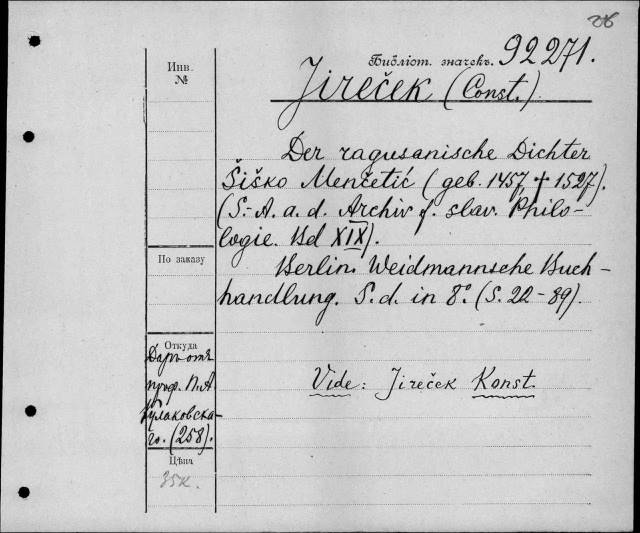 Библіот. значекъ. 92271.
Инв.
№
Jireček (Const.)
Der ragusanische Dichter
Šiško Menčetić (geb. 1457, † 1527).
(S.-A. a. d. Archiv f. slav. Philo-
logie. Bd XIX).
По заказу
Berlin. Weidmannsche Buch-
handlung. S. d. in 8°. (S. 22-89).
Откуда
Даръ отъ
проф. П. А.
Кулаковска-
го. (258).
Vide: Jireček Konst.
Цѣна
35к.